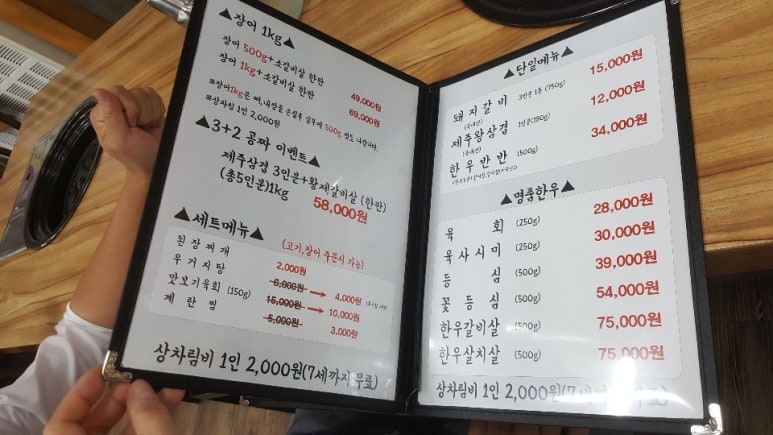 ▲장어 1kg▲
장어 500g+소갈비살 한판 49,000원
장어 1kg+소갈비살 한판 69,000원
※장어1kg은 뼈,내장을 손질후 실무게 500g 정도 나갑니다.
※상차림 1인 2,000원
▲3+2 공짜 이벤트▲
제주삼겹 3인분+황제갈비살 (한판)
(총5인분)1kg 58,000원
▲세트메뉴▲ (고기,장어 주문시 가능)
된장찌개 2,000원
우거지탕 6,000원 → 4,000원
맛보기육회 (150g) 15,000원 → 10,000원
계란찜 5,000원 3,000원
상차림비 1인 2,000원(7세까지 무료)
▲단일메뉴▲
돼지갈비 3인분 1통 (750g) 15,000원
(국내산)
제주왕삼겹 1인분(180g) 12,000원
(국내산)
한우반반 (500g) 34,000원
▲명품한우▲
육 회 (250g) 28,000원
육사시미 (250g) 30,000원
등 심 (500g) 39,000원
꽃등심 (500g) 54,000원
한우갈비살 (500g) 75,000원
한우살치살 (500g) 75,000원
상차림비 1인 2,000원(7세